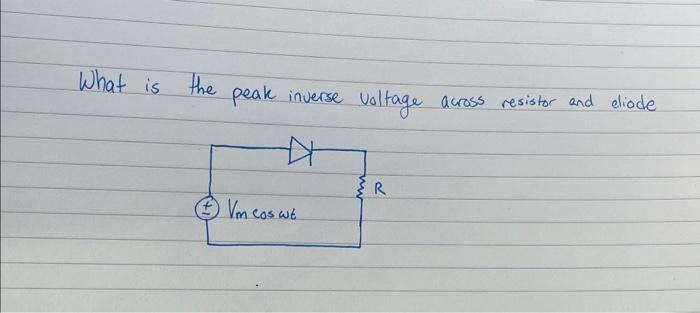 What is the peak inverse voltage across resistor and diode
R
± Vm cos wt